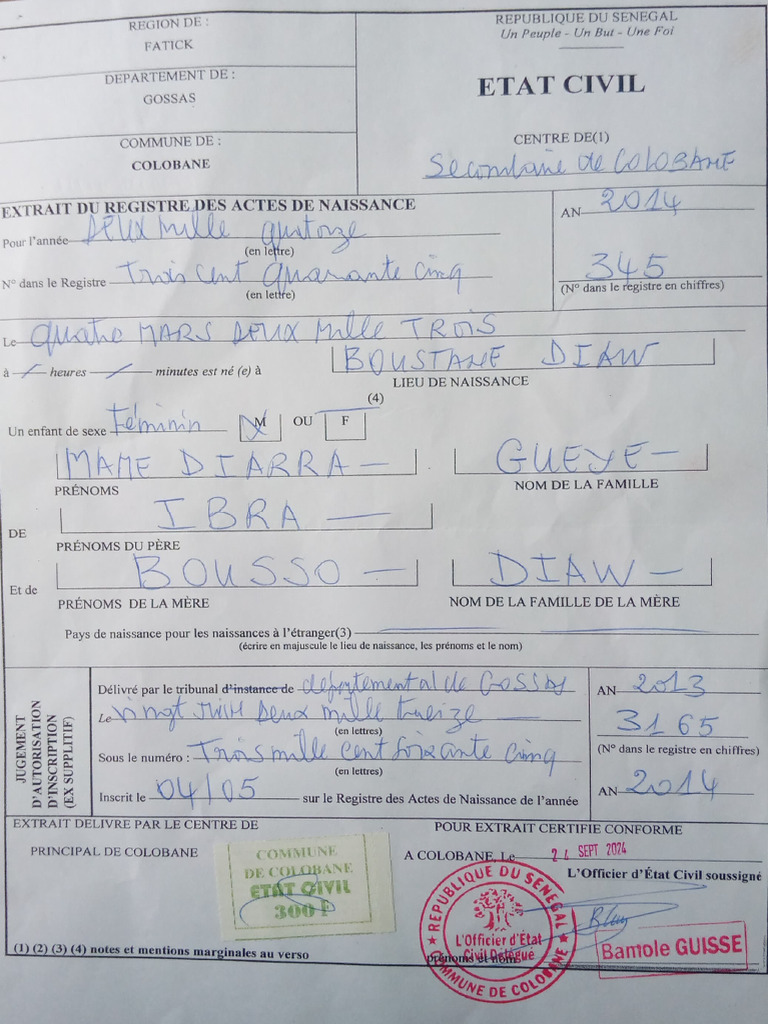 REGION DE :
FATICK
DEPARTEMENT DE :
GOSSAS
COMMUNE DE :
COLOBANE
REPUBLIQUE DU SENEGAL
Un Peuple - Un But - Une Foi
ETAT CIVIL
CENTRE DE(1)
Secondaire de COLOBANE
EXTRAIT DU REGISTRE DES ACTES DE NAISSANCE
AN 2014
Pour l'année DEUX mille quatorze
(en lettre)
N° dans le Registre Trois cent quarante cinq
(en lettre)
345
(N° dans le registre en chiffres)
Le quatre MARS DEUX mille TROIS
à — heures — minutes est né (e) à BOUSTANE DIAW
LIEU DE NAISSANCE
(4)
Un enfant de sexe Féminin M OU F
MAME DIARRA — GUEYE —
PRÉNOMS NOM DE LA FAMILLE
DE IBRA —
PRÉNOMS DU PÈRE
Et de BOUSSO — DIAW —
PRÉNOMS DE LA MÈRE NOM DE LA FAMILLE DE LA MÈRE
Pays de naissance pour les naissances à l'étranger(3)
(écrire en majuscule le lieu de naissance, les prénoms et le nom)
JUGEMENT
D'AUTORISATION
D'INSCRIPTION
(EX SUPPLITIF)
Délivré par le tribunal d'instance de départemental de GOSSAS AN 2013
Le vingt JUIN Deux mille treize —
(en lettres)
3165
(N° dans le registre en chiffres)
Sous le numéro : Trois mille cent soixante cinq
(en lettres)
Inscrit le 04/05 sur le Registre des Actes de Naissance de l'année AN 2014
EXTRAIT DELIVRE PAR LE CENTRE DE
PRINCIPAL DE COLOBANE
COMMUNE
DE COLOBANE
ETAT CIVIL
300 F
POUR EXTRAIT CERTIFIE CONFORME
A COLOBANE, Le SEPT 2024
L'Officier d'État Civil soussigné
REPUBLIQUE DU SENEGAL
L'Officier d'État
Civil Délégué
COMMUNE DE COLOBANE
prénoms et nom
Bamole GUISSE
(1) (2) (3) (4) notes et mentions marginales au verso